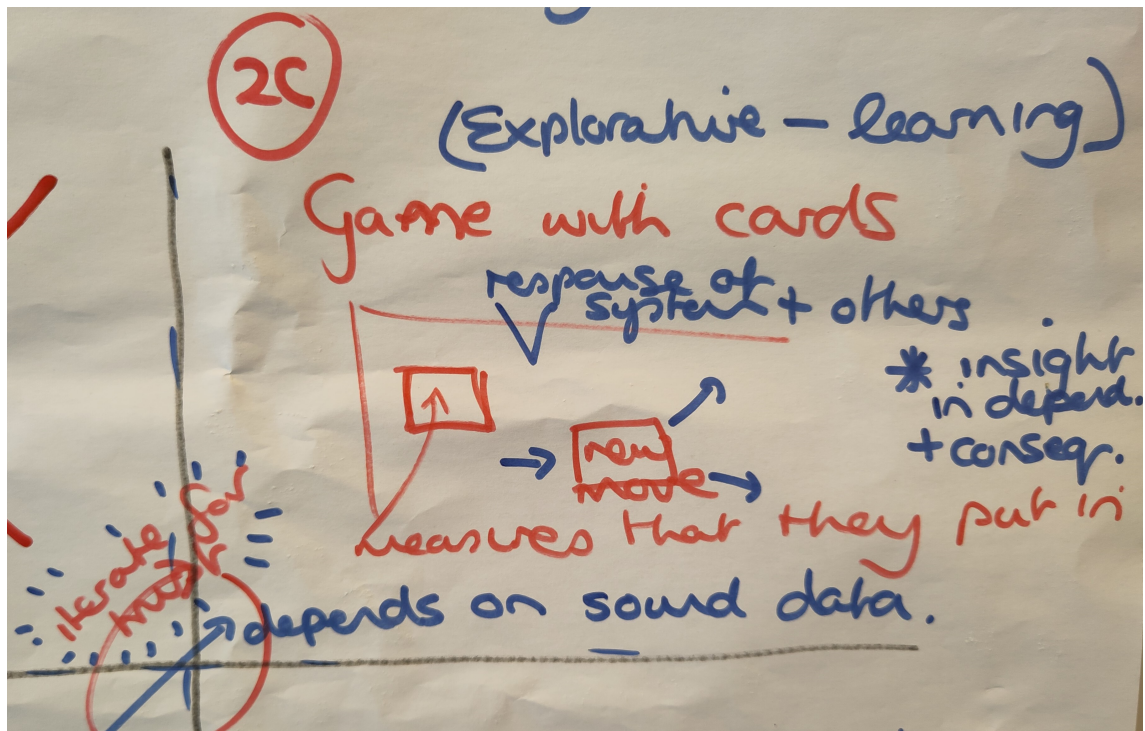 2C
(Explorative - learning)
Game with cards
response of
system + others
* insight
in depend.
+ conseq.
new
move
measures that they put in
iterate
for
depends on sound data.